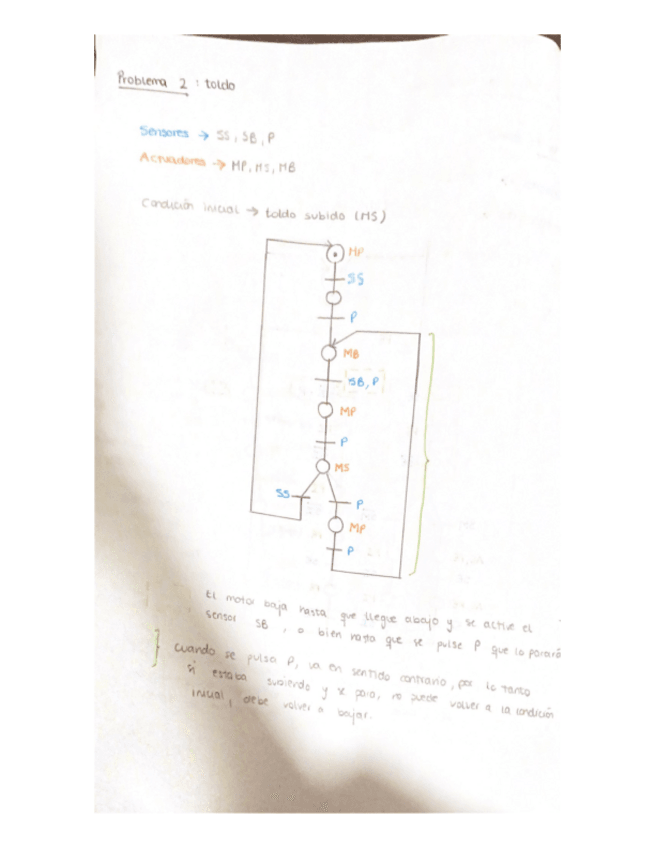 Problema 2 : toldo
Sensores → SS, SB, P
Actuadores → MP, MS, MB
Condición inicial → toldo subido (MS)
MP
SS
P
MB
SB, P
MP
P
MS
SS
P
MP
P
El motor baja hasta que llegue abajo y se active el
sensor SB, o bien hasta que se pulse P que lo parará
Cuando se pulsa P, va en sentido contrario, por lo tanto
si estaba subiendo y se para, no puede volver a la condición
inicial, debe volver a bajar.